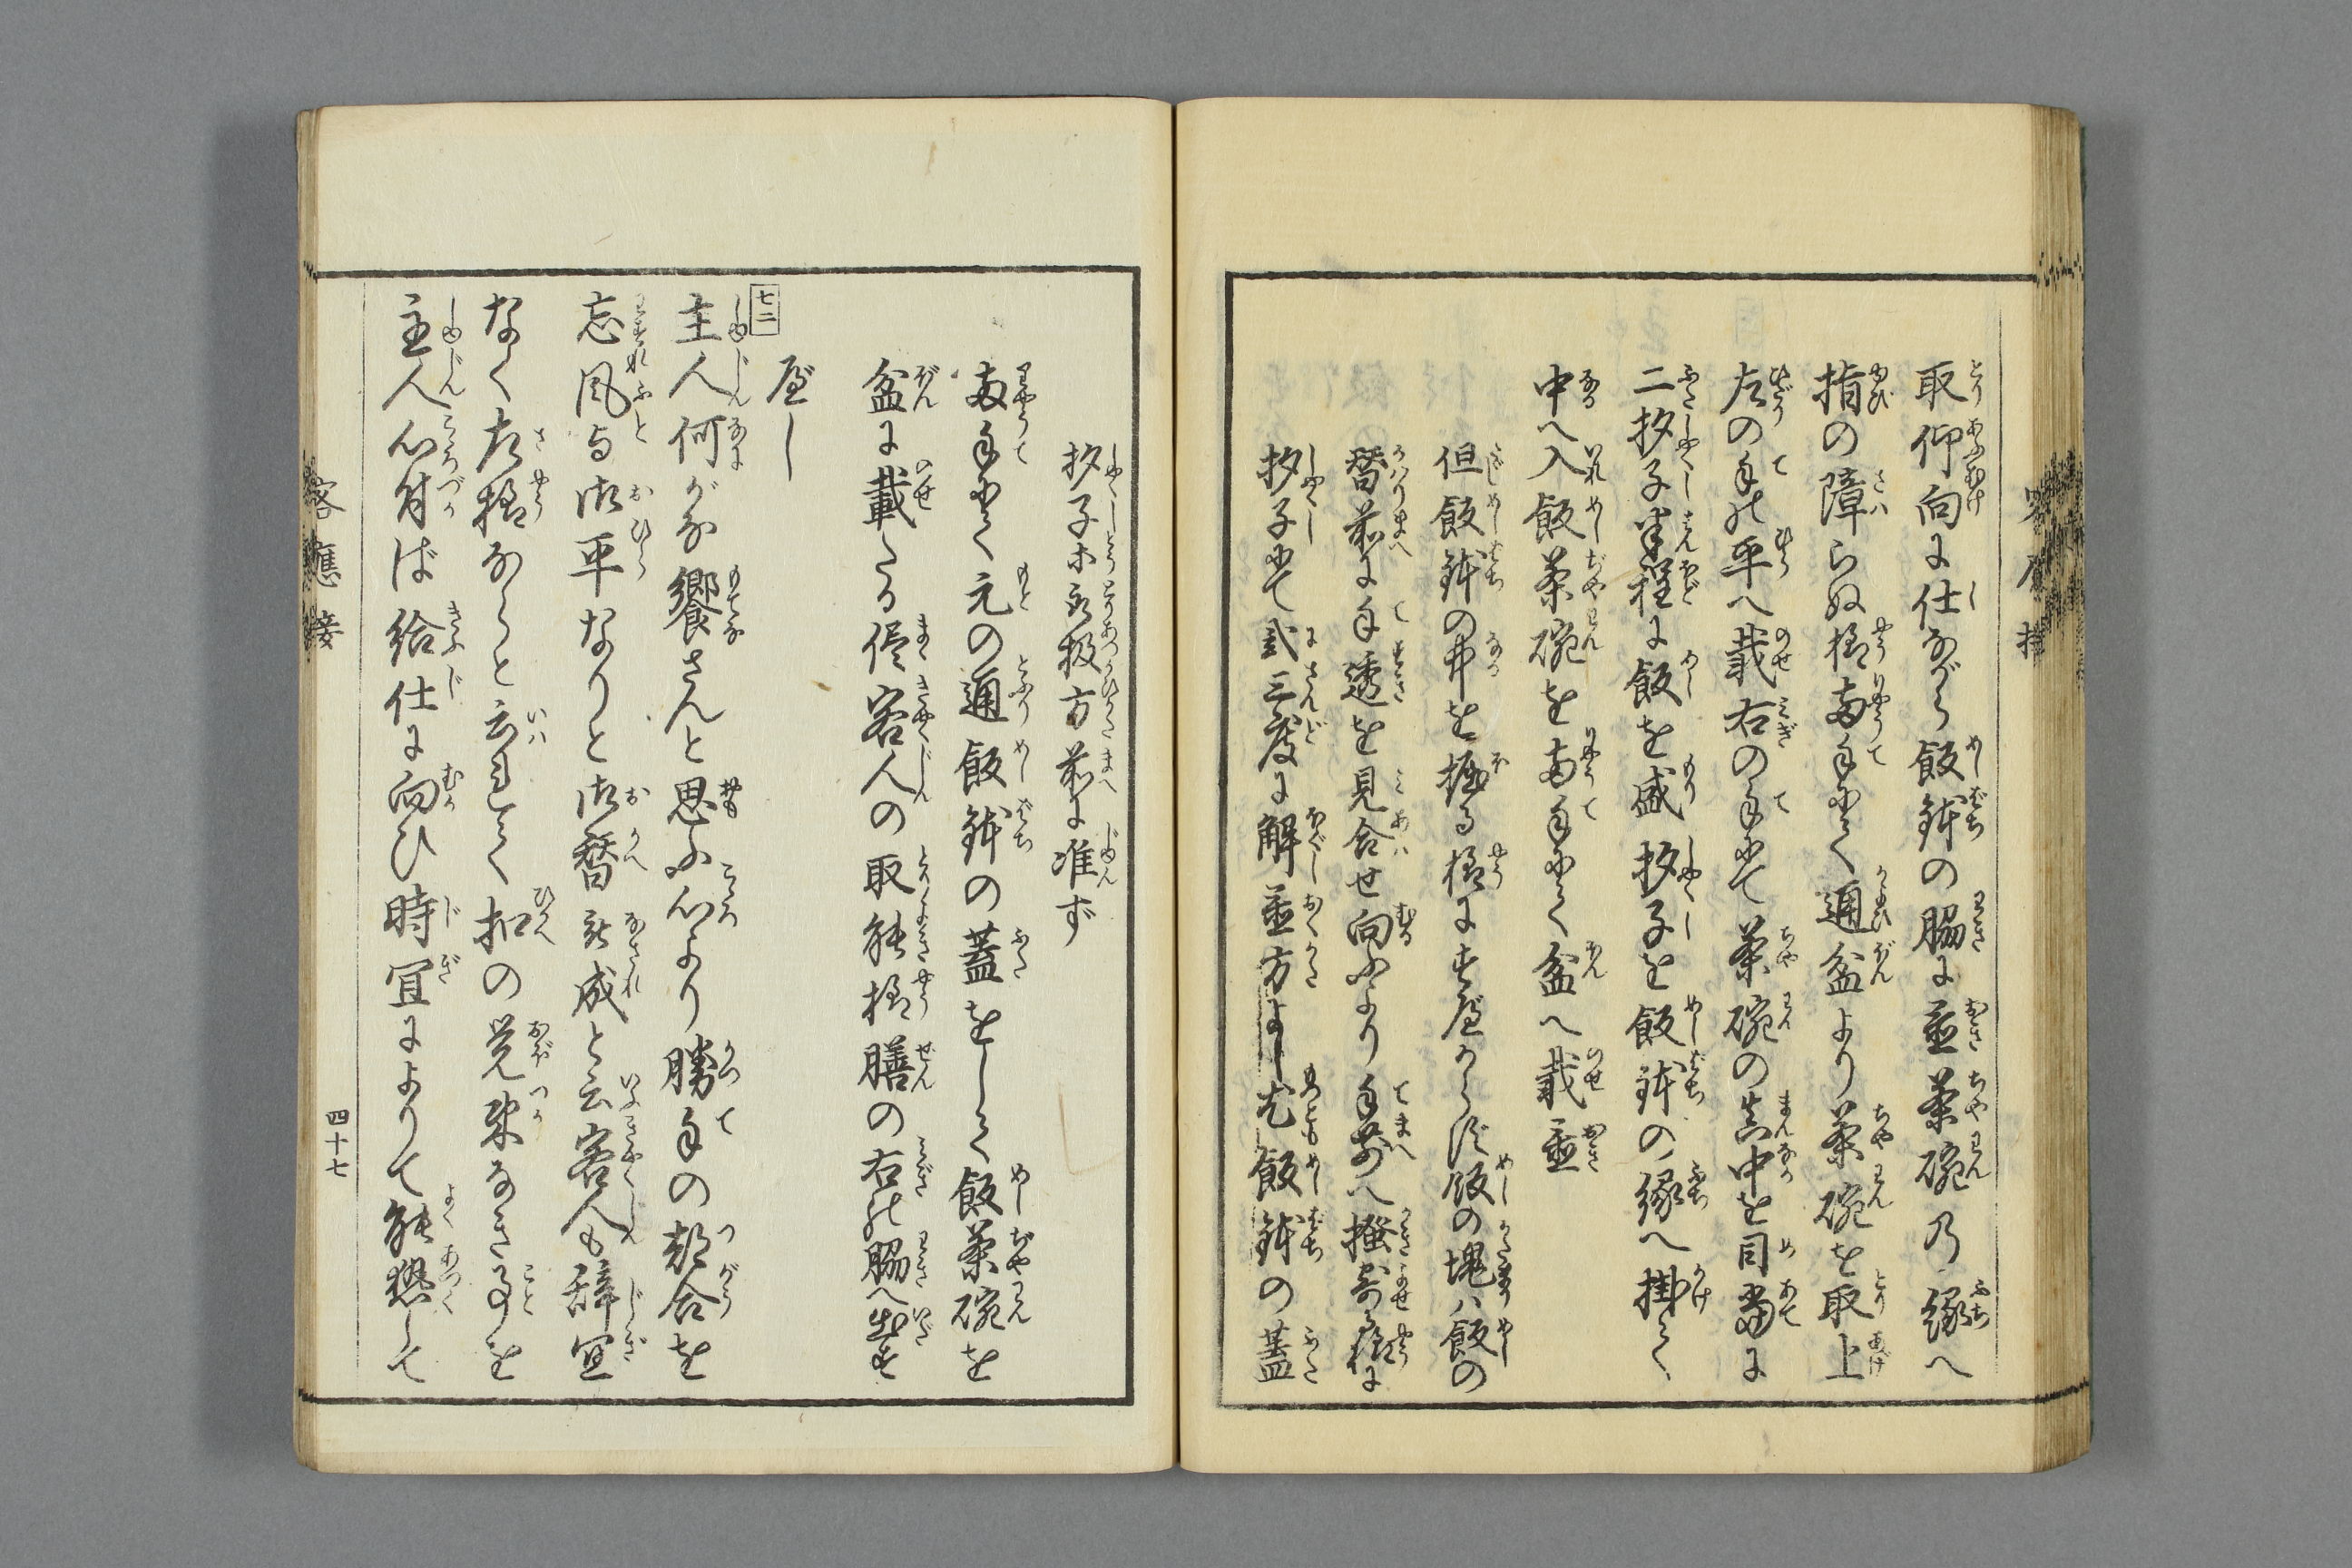 取仰向に仕ながら飯鉢の脇に並茶碗乃縁へ
指の障らぬ様両手にて通盆より茶碗を取上
左の手の平へ載右の手にて茶碗の真中を目当に
二杓子半程に飯を盛杓子を飯鉢の縁へ掛て
中へ入飯茶碗を両手にて盆へ載並
但飯鉢の中を掘る様にすべからず飯の塊ハ飯の
替前に手透を見合せ向ふより手前へ掻寄る様に
杓子にて弐三度に解並方よし尤飯鉢の蓋
杓子等取扱方前に准ず
両手にて元の通飯鉢の蓋をして飯茶碗を
盆に載たる侭客人の取能様膳の右の脇へ出す
べし
七二
主人何がな饗さんと思ふ心より勝手の都合を
忘風与御平なりと御替被成と云客人も辞宜
なく左様ならと云れて扣の覚束なき事を
主人心付ば給仕に向ひ時宜によりて能熱して
客應接
四十七